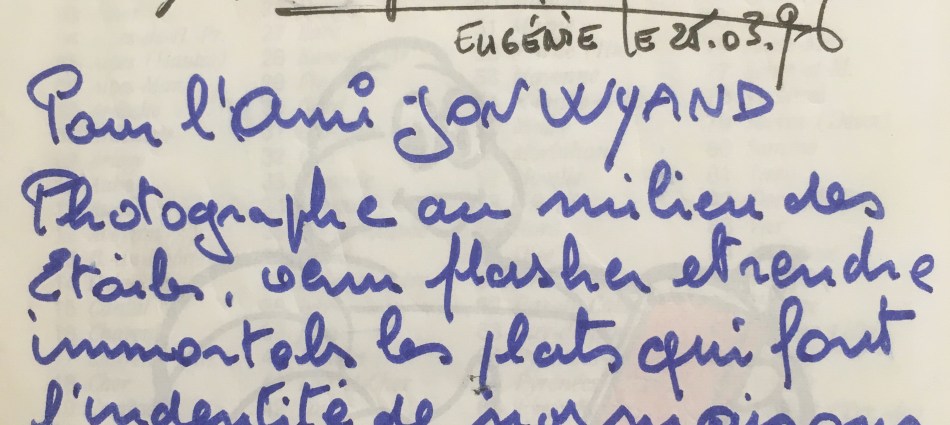 EUGÉNIE LE 25.03.96
Pour l'Ami JON WYAND
Photographe au milieu des
Etoiles, venu flasher et rendre
immortels les plats qui font
l'indentité de nos maisons